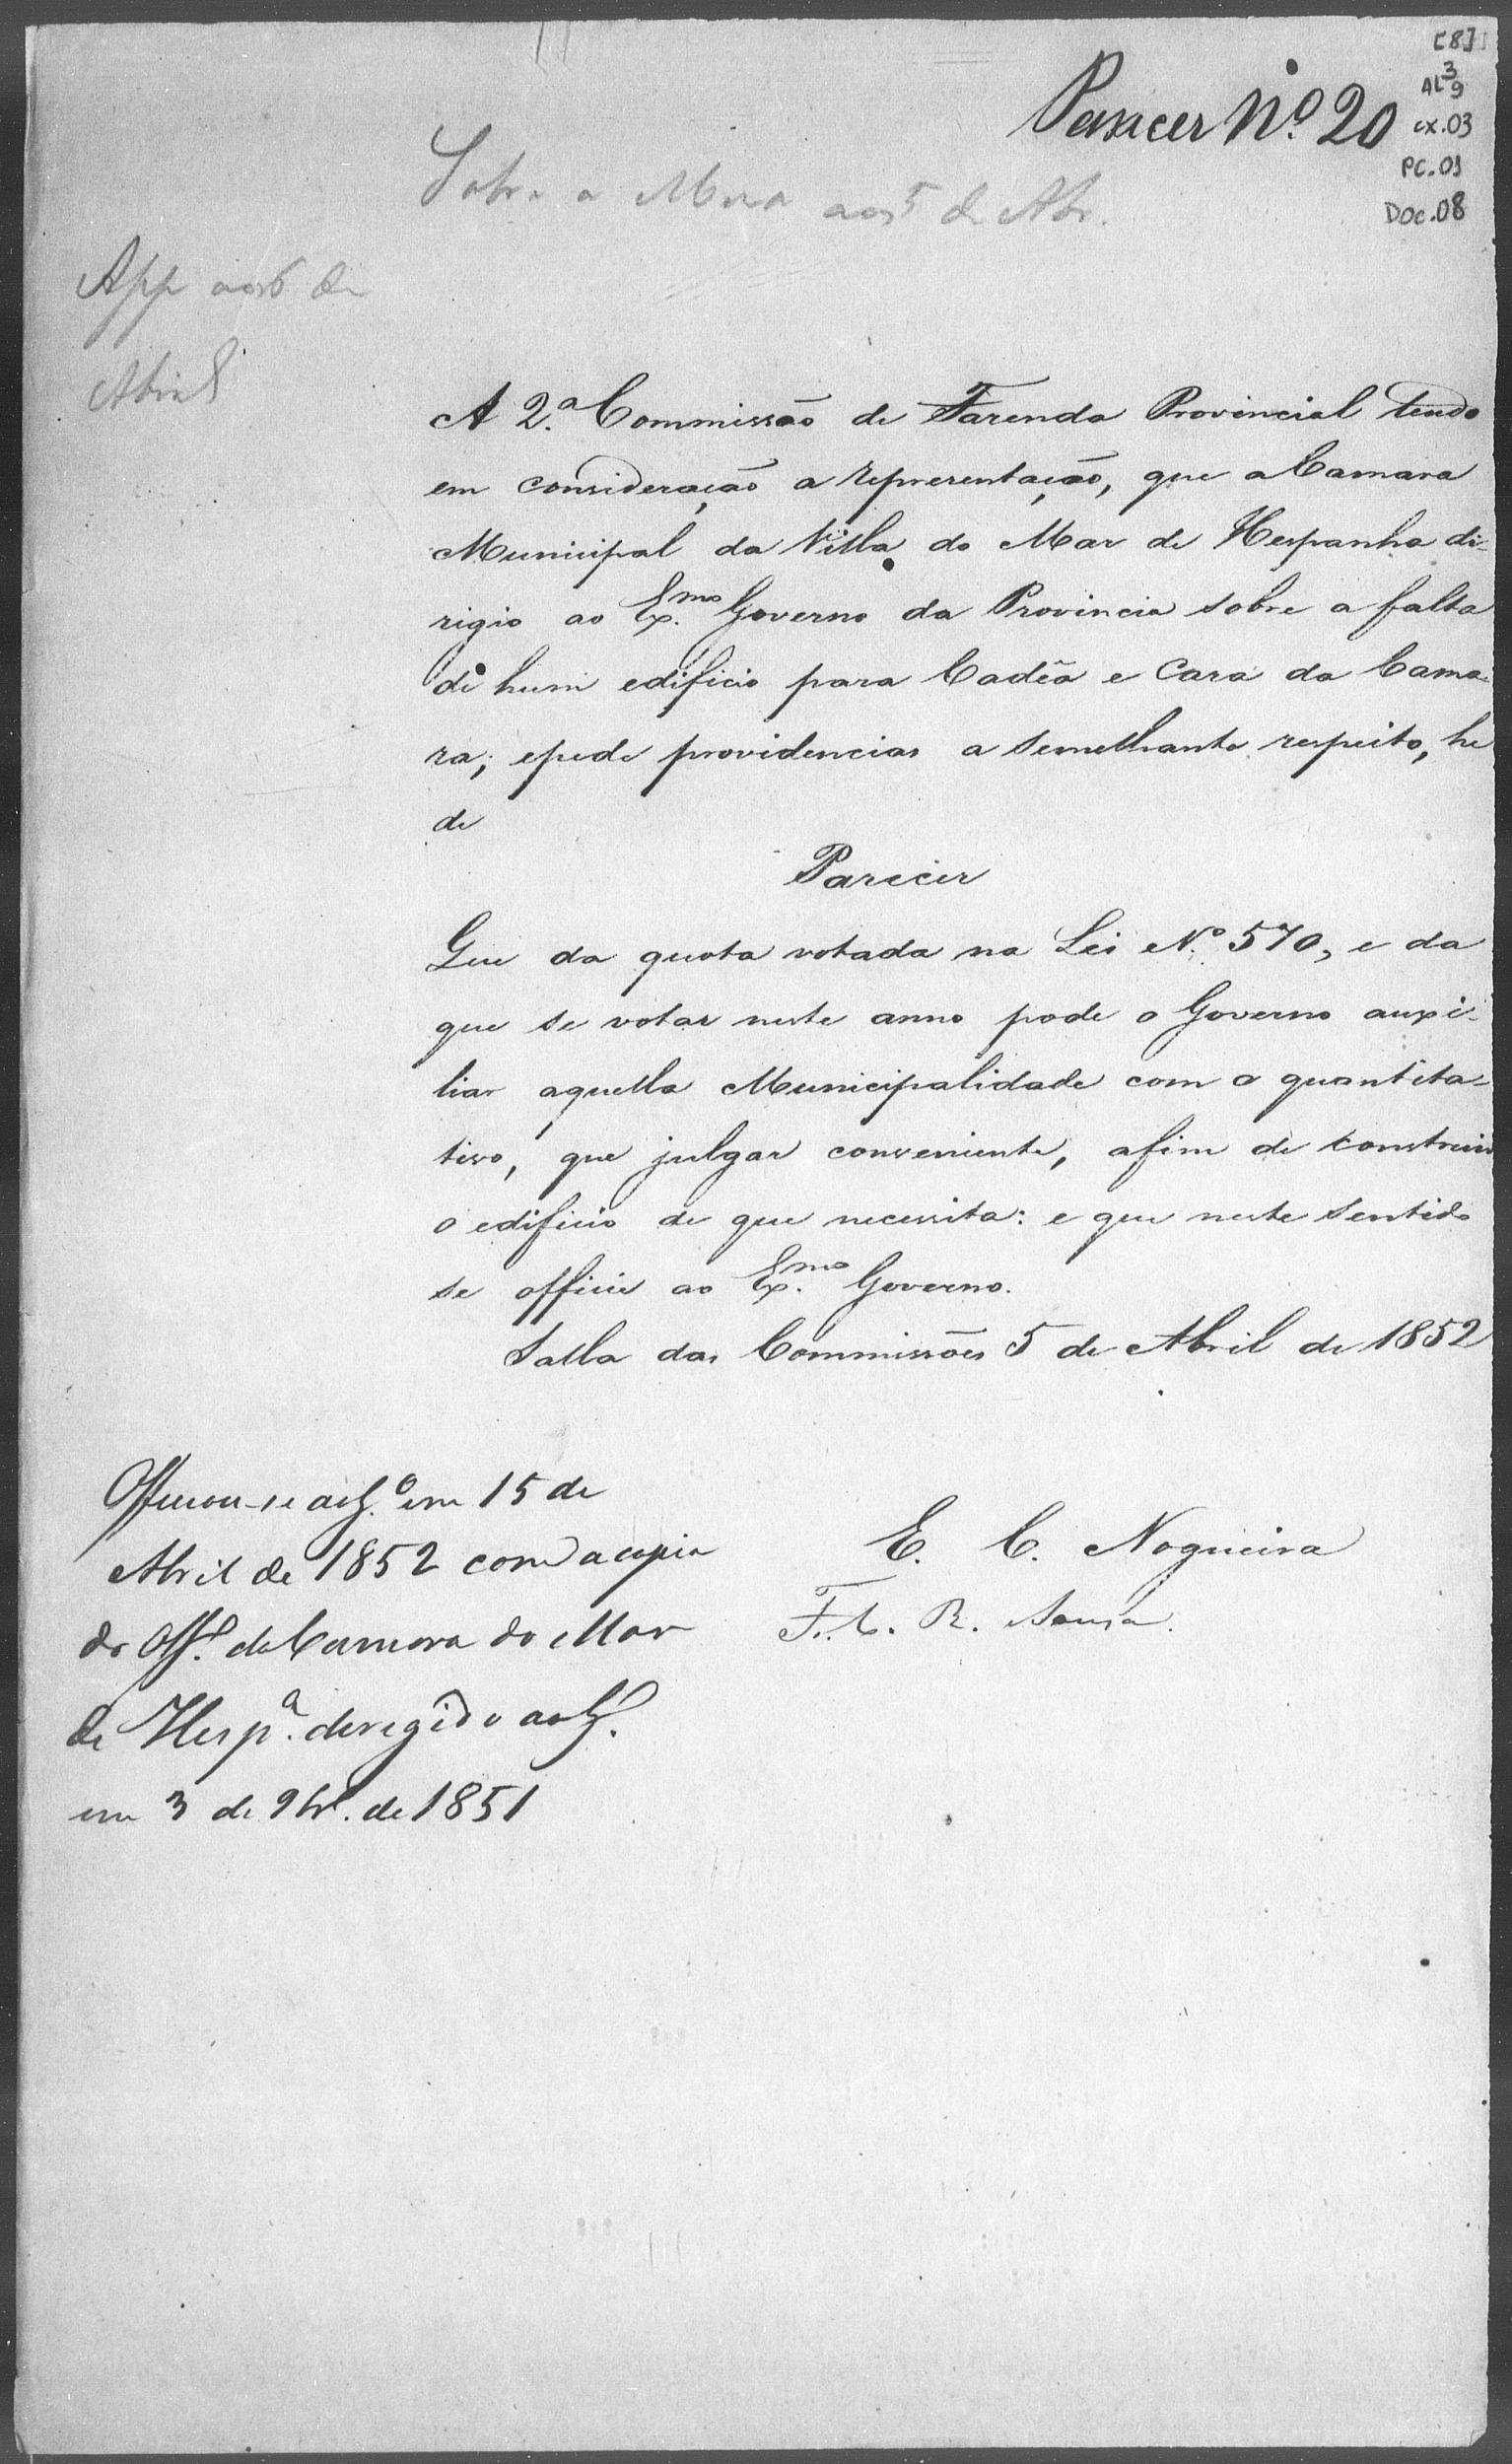 [8]
AL 3
9
cx.03
PC.01
DOC.08
Parecer Nº. 20
Sobre a Mesa aos 5 de Abr.
App aos 6 de
Abril
A 2.ª Commissão de Fazenda Provincial tendo
em consideração a representação, que a Camara
Municipal da Villa do Mar de Hespanha di-
rigio ao Ex.mo Governo da Provincia sobre a falta
de hum edificio para Cadêa e Casa da Cama-
ra; e pede providencias a semelhante respeito, he
de
Parecer
Que da quota votada na Lei Nº. 570, e da
que se votar neste anno pode o Governo auxi-
liar aquella Municipalidade com o quantita-
tivo, que julgar conveniente, afim de construir
o edificio de que necessita: e que neste sentido
se officie ao Ex.mo Governo.
Salla das Commissões 5 de Abril de 1852
E. C. Nogueira
F. C. R. Sousa.
Officiou-se ao G.º em 15 de
Abril de 1852 com a copia
do Off.º da Camara do Mar
de Hesp.ª deregido ao G.
em 3 de 9br. de 1851